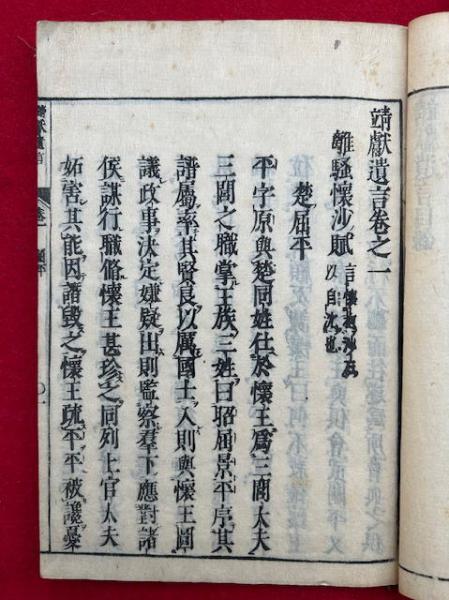 靖献遺言巻之一
離騒懐沙賦 言懐抱沙石
以自沈也
楚屈平
平字原與楚同姓仕於懐王爲三閭大夫
三閭之職掌王族三姓曰昭屈景平序其
譜屬率其賢良以厲國士入則與懐王圖
議政事決定嫌疑出則監察羣下應對諸
侯謀行職脩懐王甚珍之同列上官大夫
妬害其能因譖毀之懐王疏平平被讒憂
靖献遺言 巻一 屈平 〇一